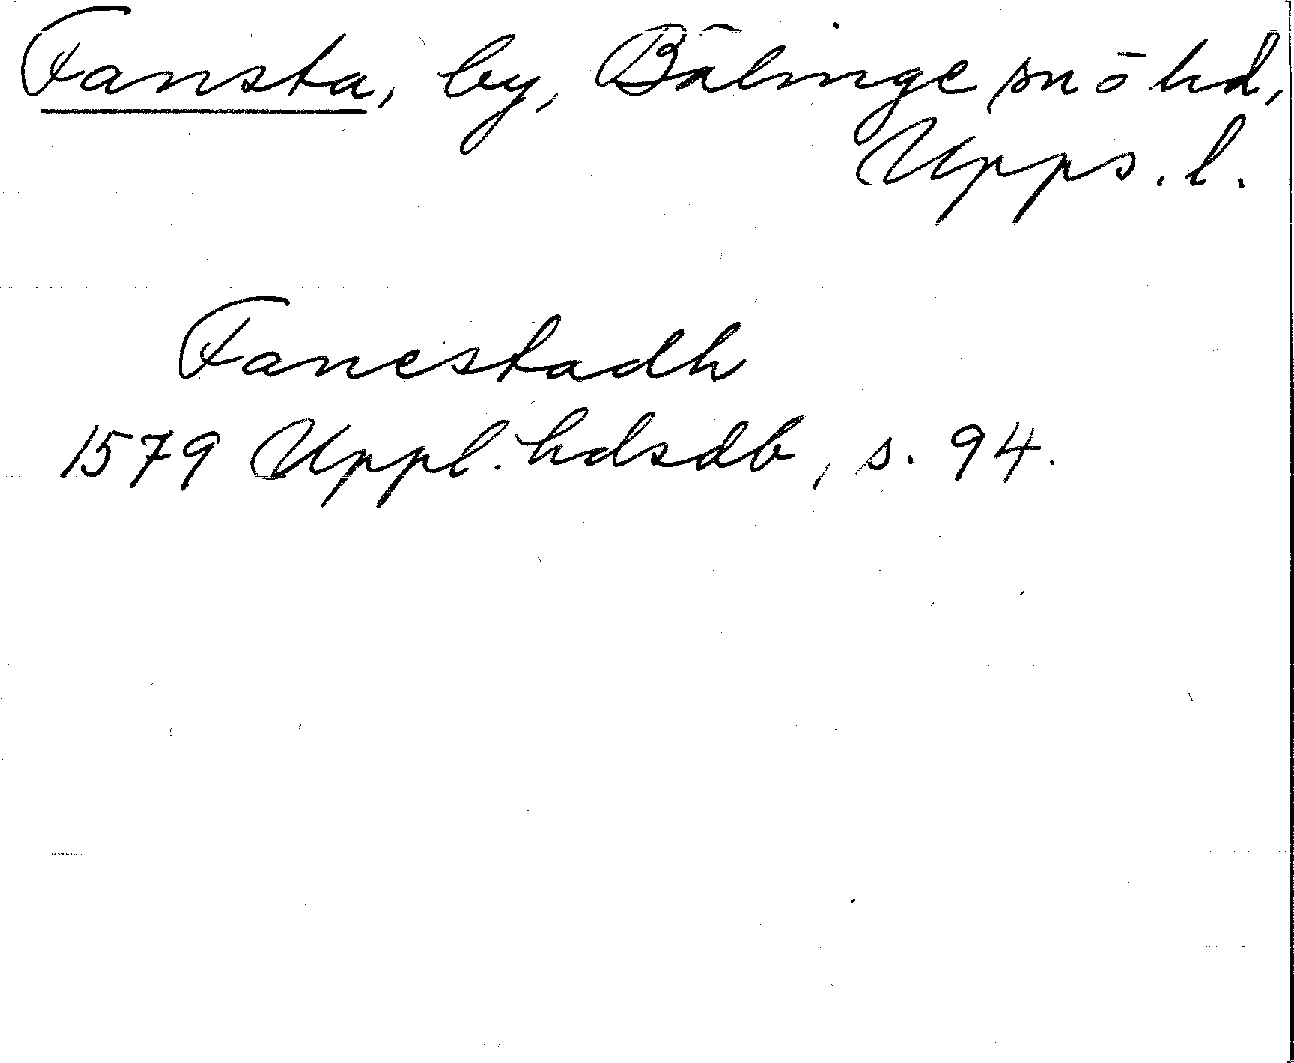 Fansta, by, Bälinge sn o hd,
Upps. l.
Fanestadh
1579 Uppl. hdsdb, s. 94.